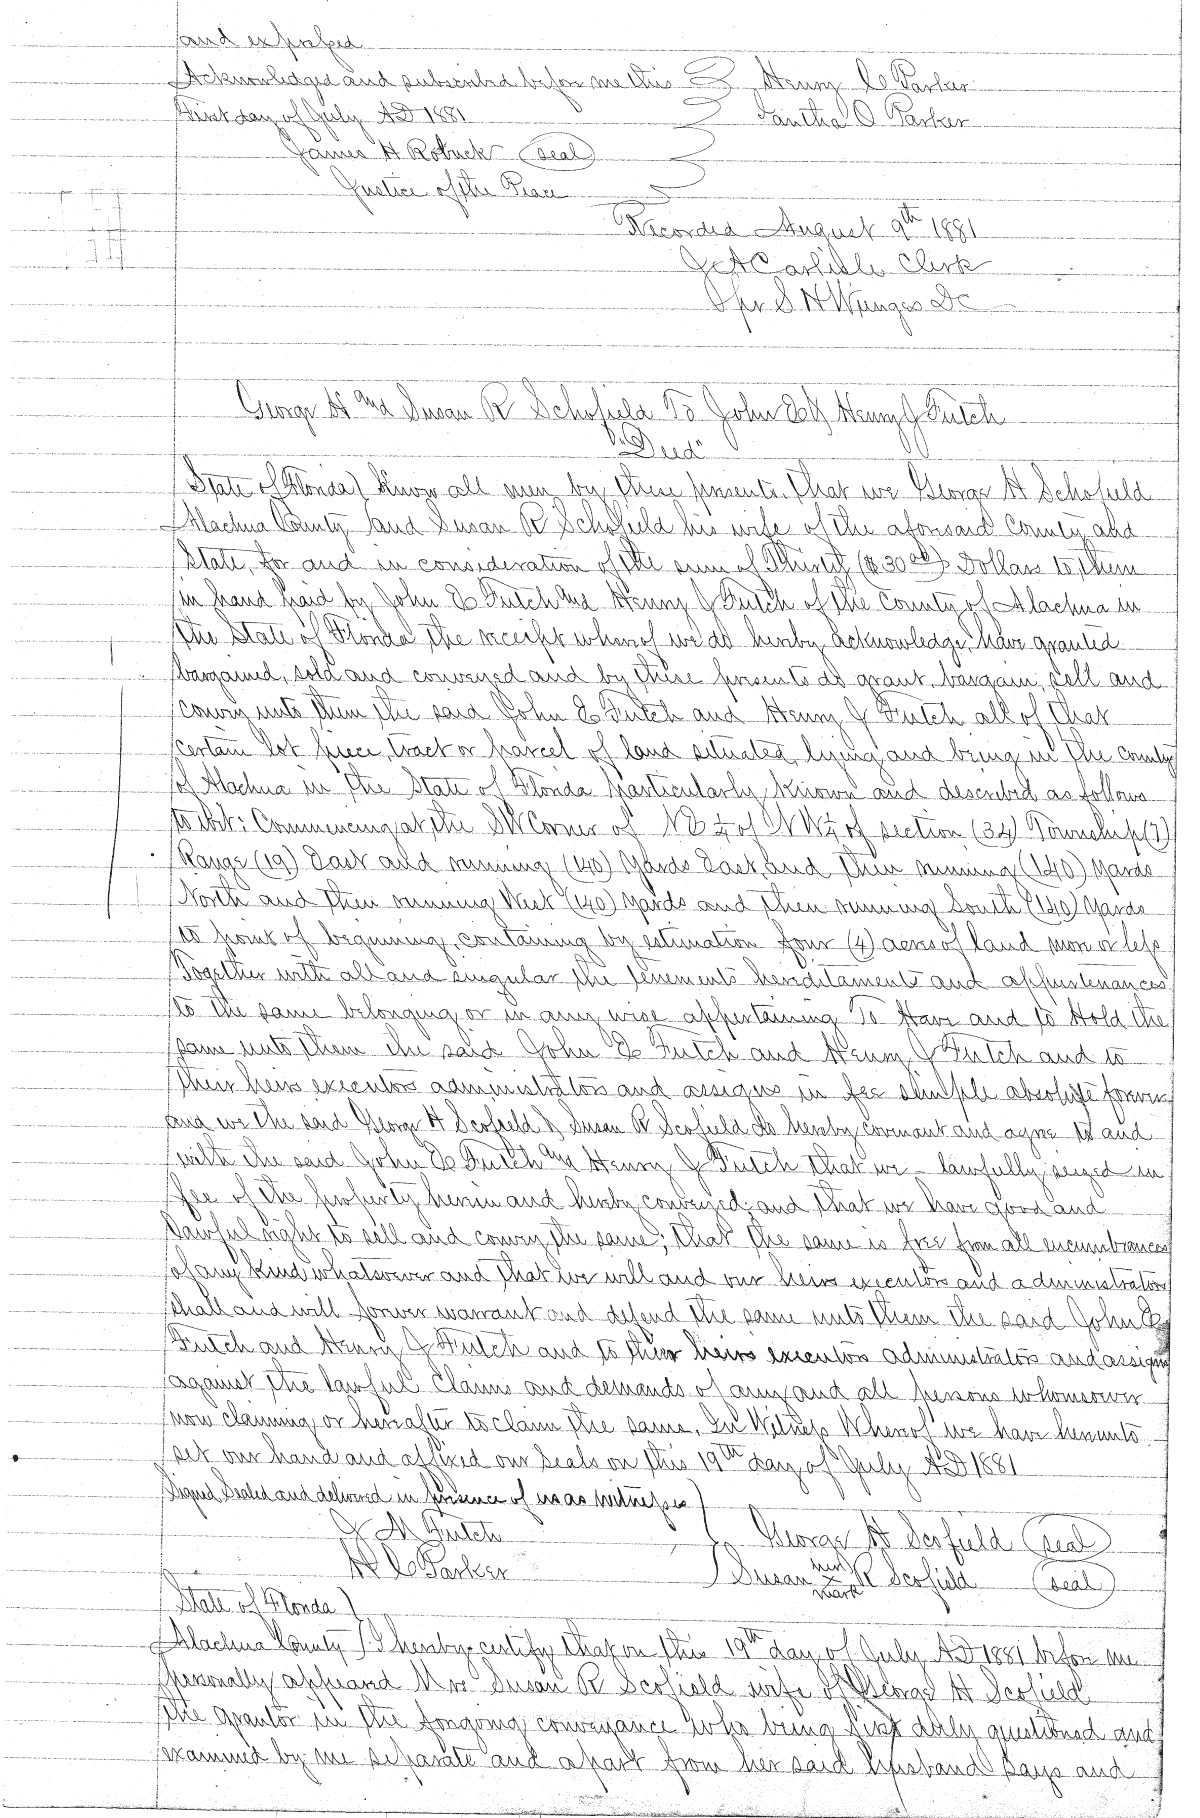 and expressed
Acknowledged and subscribed before me this Henry C Parker
First day of July AD 1881 Xantha O Parker
James H Roebuck (seal)
Justice of the Peace
Recorded August 9th 1881
J A Carlisle Clerk
pr S H Wienges DC
George H and Susan R Schofield To John E & Henry J Futch
"Deed"
State of Florida) Know all men by these presents. That we George H Schofield
Alachua County and Susan R Schofield his wife of the aforesaid County and
State, for and in consideration of the sum of Thirty ($30 00) Dollars to them
in hand paid by John E Futch and Henry J Futch of the County of Alachua in
the State of Florida the receipt whereof we do hereby acknowledge, have granted
bargained, sold and conveyed and by these presents do grant, bargain, sell and
convey unto them the said John E Futch and Henry J Futch all of that
certain lot piece, tract or parcel of land situated, lying and being in the county
of Alachua in the State of Florida particularly known and described as follows
to wit: Commencing at the SW Corner of NE ¼ of NW ¼ of section (34) Township (7)
Range (19) East and running (140) Yards East, and then running (140) Yards
North and then running West (140) Yards and then running South (140) Yards
to point of beginning, containing by estimation four (4) acres of land more or less
Together with all and singular the tenements hereditaments and appurtenances
to the same belonging or in any wise appertaining To Have and to Hold the
same unto them the said John E Futch and Henry J Futch and to
their heirs executors administrators and assigns in fee simple absolute forever
and we the said George H Scofield & Susan R Scofield do hereby covenant and agree to and
with the said John E Futch and Henry J Futch that we - lawfully seized in
fee of the property herein and hereby conveyed; and that we have good and
lawful right to sell and convey the same; that the same is free from all encumbrances
of any kind whatsoever and that we will and our heirs executors and administrators
shall and will forever warrant and defend the same unto them the said John E
Futch and Henry J Futch and to their heirs executors administrators and assigns
against the lawful claims and demands of any and all persons whomsoever
now claiming or hereafter to claim the same. In Witness Whereof we have hereunto
set our hand and affixed our Seals on this 19th day of July AD 1881
Signed Sealed and delivered in presence of us as witnesses)
J M Futch George H Scofield (seal)
H C Parker Susan her x mark R Scofield (seal)
State of Florida)
Alachua County) I hereby certify that on this 19th day of July AD 1881 before me
personally appeared Mrs Susan R Scofield wife of George H Scofield
the grantor in the forgoing conveyance who being first duly questioned and
examined by me separate and apart from her said husband says and